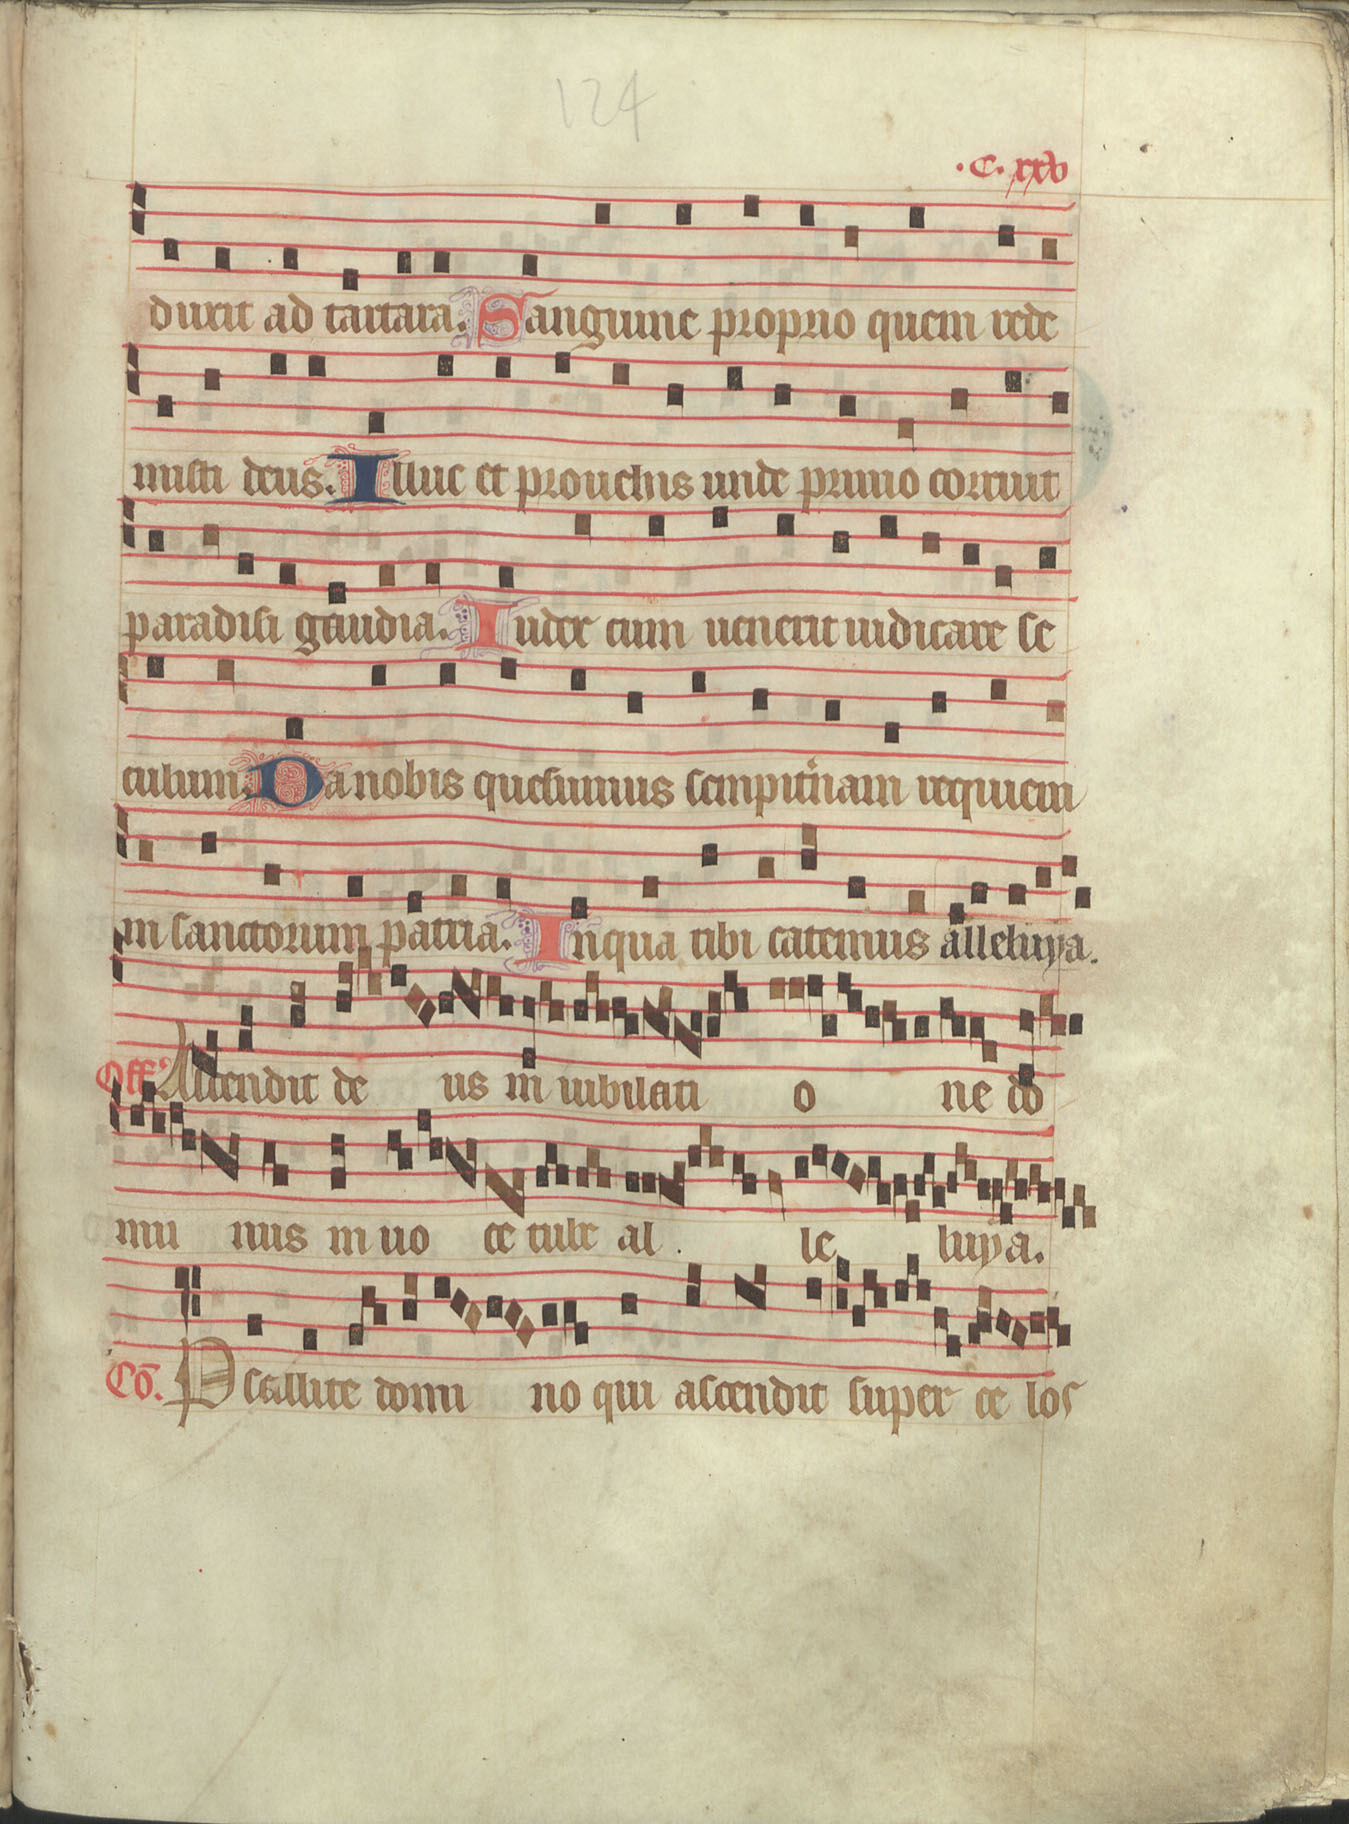 124
.C. xxv
duxit ad tartara. Sanguine proprio quem rede
misti deus. Illuc et prouehis unde primo corruit
paradisi gaudia. Iudex cum uenerit iudicare se
culum. Da nobis quesumus sempit̾nam requiem
in sanctorum patria. In qua tibi catemus alleluya.
Off' Ascendit de us in iubilati o ne do
mi nus in uo ce tube al . le luya.
Cō. Psallite domi no qui ascendit super ce los